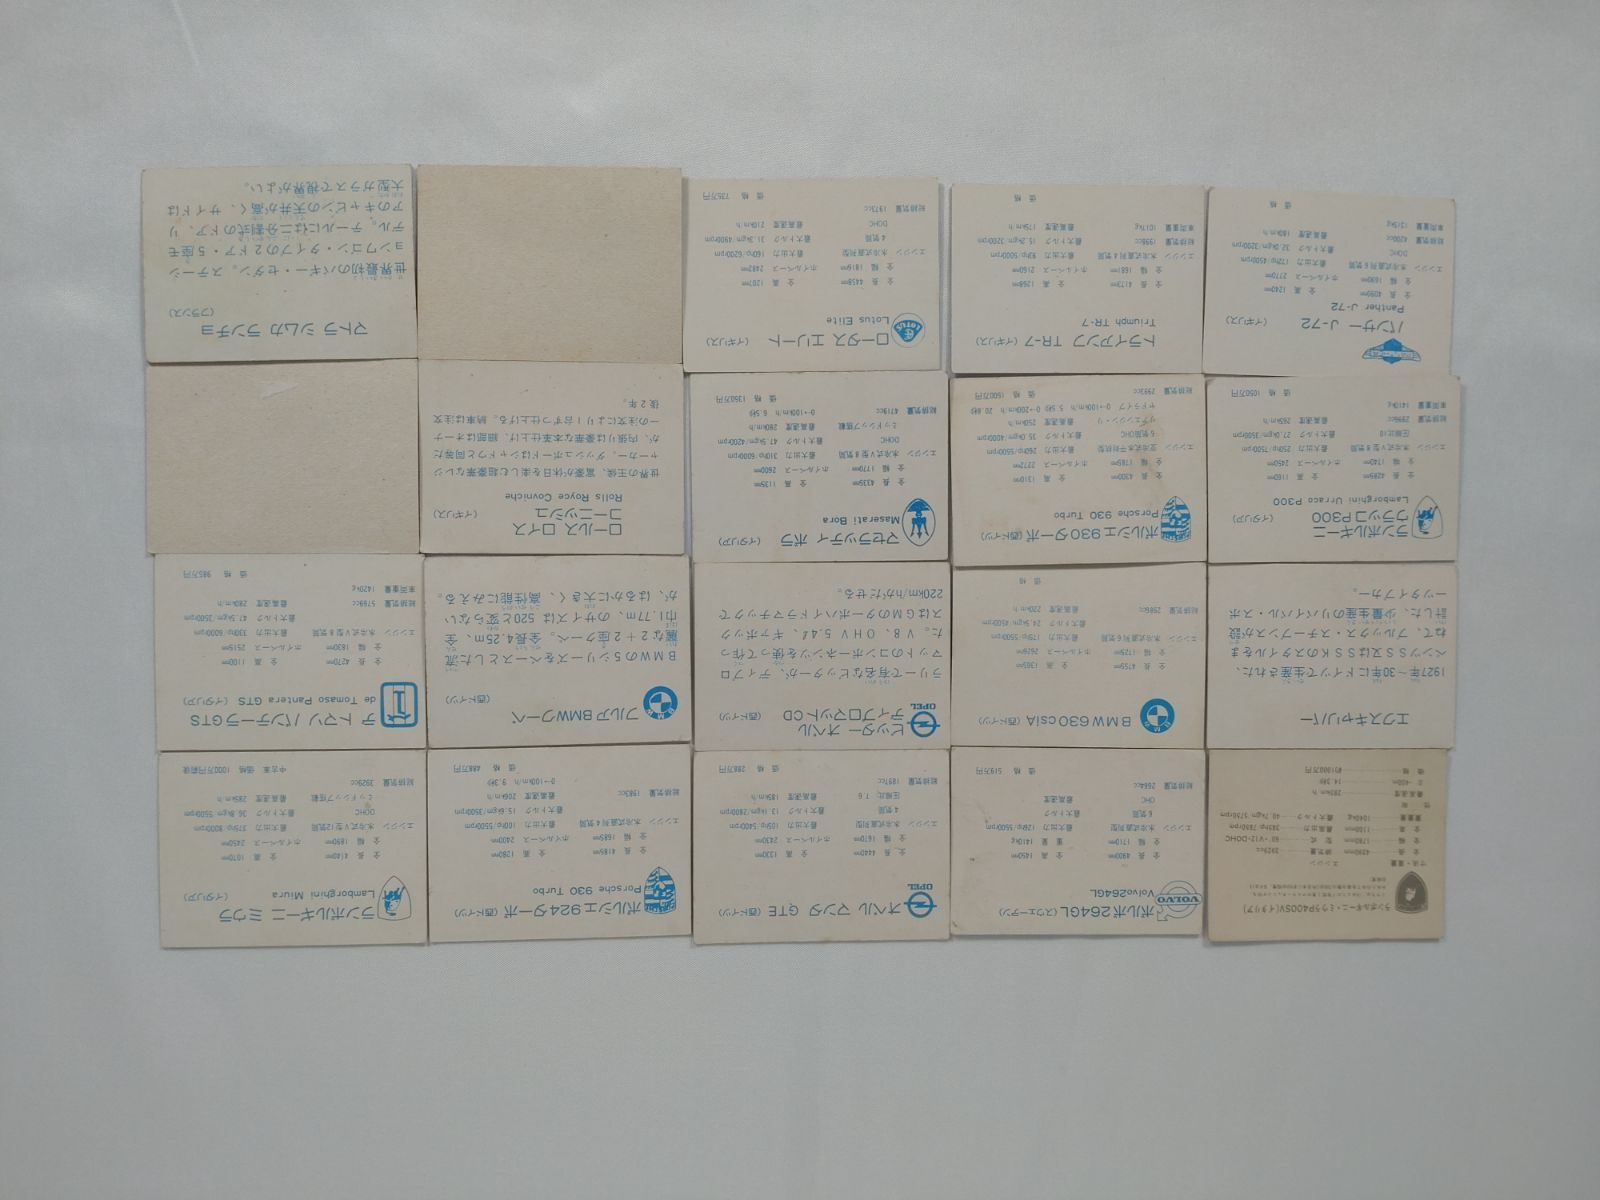 マトラ シムカ ランチョ
(フランス)
世界最初のバギー・セダン。ステーシ
ョンワゴンタイプの2ドア・5座モ
デル。テールには二分割式のドア、リ
アのキャビンの天井が高く、サイドは
大型ガラスで視界がよい。
ロータス エリート (イギリス)
Lotus Elite
全 長 4458mm 全 高 1207mm
全 幅 1816mm ホイルベース 2482mm
エンジン 水冷式直列型 最大出力 160hp/6200rpm
4気筒 最大トルク 31.3kgm/4900rpm
DOHC 最高速度 210km/h
総排気量 1973cc
価 格 735万円
トライアンフ TR-7 (イギリス)
Triumph TR-7
全 長 4173mm 全 高 1268mm
全 幅 1681mm ホイルベース 2160mm
エンジン 水冷式直列4気筒 最大出力 93hp/5000rpm
総排気量 1998cc 最大トルク 15.2kgm/3200rpm
車両重量 1017kg 最高速度 175km/h
価 格
パンサー J-72 (イギリス)
Panther J-72
全 長 4099mm 全 高 1240mm
全 幅 1690mm ホイルベース 2770mm
エンジン 水冷式直列6気筒 最大出力 172hp/4500rpm
DOHC 最大トルク 32.0kgm/3200rpm
総排気量 4200cc 最高速度 180km/h
車両重量 1315kg
価 格
ロールス ロイス
コーニッシュ (イギリス)
Rolls Royce Covniche
世界の王候、富豪が休日を楽しむ超豪華なレジ
ャーカー、ダッシュボードはシャドウと同等だ
が、内張りは豪華な本革仕上げ、細部はオーナ
ーの注文により1台ずつ仕上げる。納車は注文
後2年。
マセラッティ ボラ (イタリア)
Maserati Bora
全 長 4335mm 全 高 1135mm
全 幅 1770mm ホイルベース 2600mm
エンジン 水冷式V型8気筒 最大出力 310hp/6000rpm
DOHC 最大トルク 47.5kgm/4200rpm
ミッドシップ搭載 最高速度 280km/h
総排気量 4719cc 0→100km/h 6.5秒
価 格 1350万円
ポルシェ930ターボ (西ドイツ)
Porsche 930 Turbo
全 長 4300mm 全 高 1310mm
全 幅 1785mm ホイルベース 2272mm
エンジン 空冷式水平対抗型 最大出力 260hp/5500rpm
6気筒OHC 最大トルク 35.0kgm/4000rpm
リヤエンジン・リ 最高速度 250km/h
ヤドライブ 0→100km/h 5.5秒 0→200km/h 20秒
総排気量 2993cc 価 格 1500万円
ランボルギーニ
ウラッコP300 (イタリア)
Lamborghini Urraco P300
全 長 4265mm 全 高 1160mm
全 幅 1740mm ホイルベース 2450mm
エンジン 水冷式V型8気筒 最大出力 250hp/7500rpm
圧縮比10 最大トルク 27.0kgm/3500rpm
総排気量 2996cc 最高速度 265km/h
車両重量 1410kg
価 格 1050万円
デ トマソ パンテーラGTS
de Tomaso Pantera GTS (イタリア)
全 長 4270mm 全 高 1100mm
全 幅 1830mm ホイルベース 2515mm
エンジン 水冷式V型8気筒 最大出力 330hp/6000rpm
最大トルク 47.5kgm/3500rpm
総排気量 5769cc 最高速度 280km/h
車両重量 1420kg
価 格 985万円
フルア BMWクーペ (西ドイツ)
BMWの5シリーズをベースとした流
麗な2+2座クーペ。全長4.25m、全
巾1.77m、のサイズは520と変らない
が、はるかに大きく、高性能にみえる。
OPEL
ビッター オペル
ディプロマットCD (西ドイツ)
ラリーで有名なビッターが、ディプロ
マットのコンポーネンツを使って作っ
た。V8、OHV5.4ℓ、ギヤボック
スはGMのターボハイドラマチックで
220km/hがだせる。
BMW630csiA (西ドイツ)
全 長 4755mm 全 高 1365mm
全 幅 1725mm ホイルベース 2626mm
エンジン 水冷式直列6気筒 最大出力 175hp/5500rpm
最大トルク 24.5kgm/4500rpm
総排気量 2986cc 最高速度 220km/h
価 格
エクスキャリバー
1927年〜30年にドイツで生産された、
ベンツSSS又はSSKのスタイルをま
ねて、ブルックス・スチーブンスが設
計した、少量生産のリバイバル・スポ
ーツタイプカー
ランボルギーニ ミウラ
Lamborghini Miura (イタリア)
全 長 4140mm 全 高 1070mm
全 幅 1850mm ホイルベース 2450mm
エンジン 水冷式V型12気筒 最大出力 375hp/8000rpm
DOHC 最大トルク 36.8kgm/5500rpm
ミッドシップ搭載 最高速度 285km/h
総排気量 3929cc
中古車 価格 1000万円前後
ポルシェ924ターボ (西ドイツ)
Porsche 930 Turbo
全 長 4185mm 全 高 1280mm
全 幅 1685mm ホイルベース 2400mm
エンジン 水冷式直列4気筒 最大出力 100hp/5500rpm
最大トルク 15.6kgm/3500rpm
総排気量 1983cc 最高速度 206km/h
0→100km/h 9.3秒
価 格 488万円
OPEL
オペル マンタ GTE (西ドイツ)
全 長 4440mm 全 高 1330mm
全 幅 1670mm ホイルベース 2430mm
エンジン 水冷式直列型 最大出力 105hp/5400rpm
4気筒 最大トルク 13.1kgm/2800rpm
圧縮比 7.6 最高速度 185km/h
総排気量 1897cc
価 格 288万円
VOLVO
ボルボ264GL (スウェーデン)
Volvo264GL
全 長 4900mm 全 高 1450mm
全 幅 1710mm 重 量 1410kg
エンジン 水冷式直列型 最大出力 126hp/5500rpm
6気筒 最大トルク
OHC 最高速度
総排気量 2664cc
価 格 519万円
ランボルギーニ・ミウラP400SV(イタリア)
寸法・重量 エンジン
全 長 4390mm 排気量 3929cc
全 幅 1780mm 型 式 60°-V12-DOHC
全 高 1100mm 最高出力 385hp/7850rpm
重量 1040kg 最大トルク 40.7kgm/5750rpm
性 能
最高速度 283km/h
0-400m 14.3秒
価 格 約1300万円